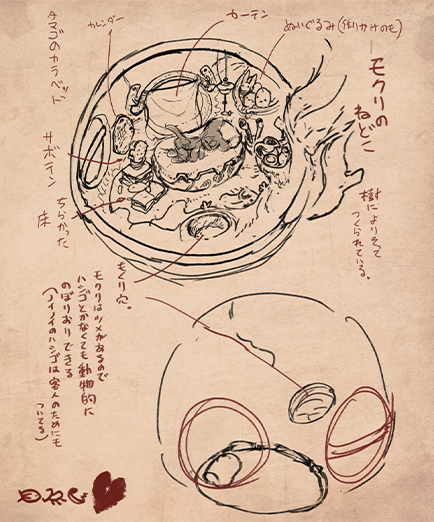 モクリの
ねどこ
樹によりそって
つくられている。
ぬいぐるみ(作りかけのも)
カーテン
カレンダー
タマゴのカラベッド
サボテン
ちらかった
床
もくり穴。
モクリはツメがあるので
ハシゴとかなくても動物的に
のぼりおりできる
(ノイノイのハシゴは客人のためにも
ついてる)